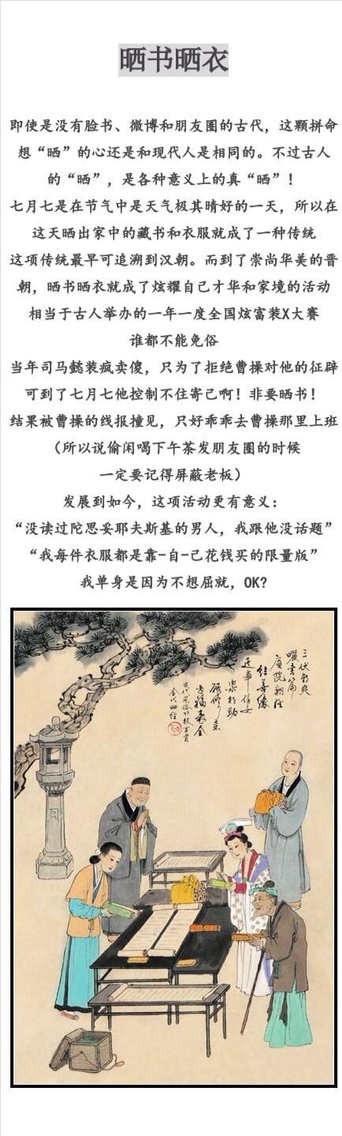 晒书晒衣
即使是没有脸书、微博和朋友圈的古代，这颗拼命
想“晒”的心还是和现代人是相同的。不过古人
的“晒”，是各种意义上的真“晒”！
七月七是在节气中是天气极其晴好的一天，所以在
这天晒出家中的藏书和衣服就成了一种传统
这项传统最早可追溯到汉朝。而到了崇尚华美的晋
朝，晒书晒衣就成了炫耀自己才华和家境的活动
相当于古人举办的一年一度全国炫富装X大赛
谁都不能免俗
当年司马懿装疯卖傻，只为了拒绝曹操对他的征辟
可到了七月七他控制不住寄己啊！非要晒书！
结果被曹操的线报撞见，只好乖乖去曹操那里上班
（所以说偷闲喝下午茶发朋友圈的时候
一定要记得屏蔽老板）
发展到如今，这项活动更有意义：
“没读过陀思妥耶夫斯基的男人，我跟他没话题”
“我每件衣服都是靠-自-己花钱买的限量版”
我单身是因为不想屈就，OK?